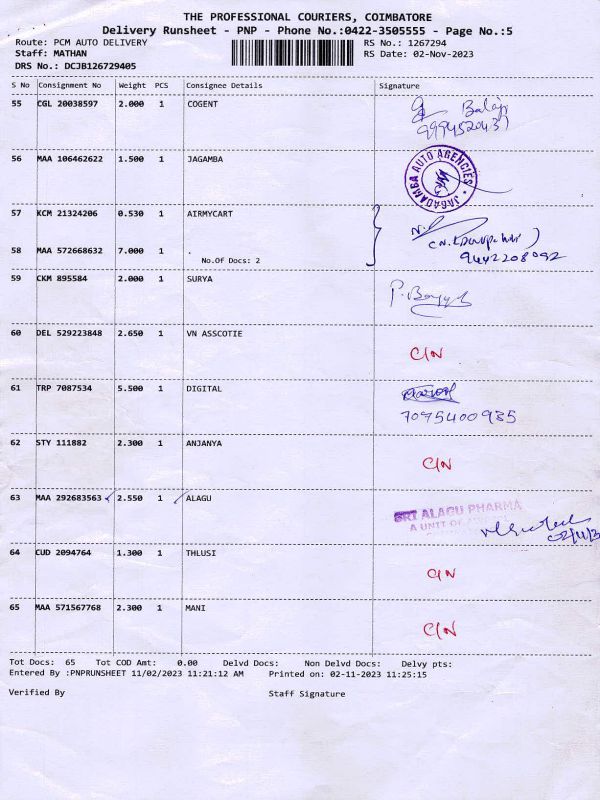 THE PROFESSIONAL COURIERS, COIMBATORE
Delivery Runsheet - PNP - Phone No.:0422-3505555 - Page No.:5
Route: PCM AUTO DELIVERY RS No.: 1267294
Staff: MATHAN RS Date: 02-Nov-2023
DRS No.: DCJB126729405
S No Consignment No Weight PCS Consignee Details Signature
55 CGL 20038597 2.000 1 COGENT Balaji
9994520437
56 MAA 106462622 1.500 1 JAGAMBA JAGADAMBA AUTO AGENCIES
57 KCM 21324206 0.530 1 AIRMYCART
58 MAA 572668632 7.000 1 .
No.Of Docs: 2 9442208092
59 CKM 895584 2.000 1 SURYA
60 DEL 529223848 2.650 1 VN ASSCOTIE C/N
61 TRP 7087534 5.500 1 DIGITAL
7095400935
62 STY 111882 2.300 1 ANJANYA C/N
63 MAA 292683563 2.550 1 ALAGU SRI ALAGU PHARMA
A UNIT OF
64 CUD 2094764 1.300 1 THLUSI C/N
65 MAA 571567768 2.300 1 MANI C/N
Tot Docs: 65 Tot COD Amt: 0.00 Delvd Docs: Non Delvd Docs: Delvy pts:
Entered By :PNPRUNSHEET 11/02/2023 11:21:12 AM Printed on: 02-11-2023 11:25:15
Verified By Staff Signature